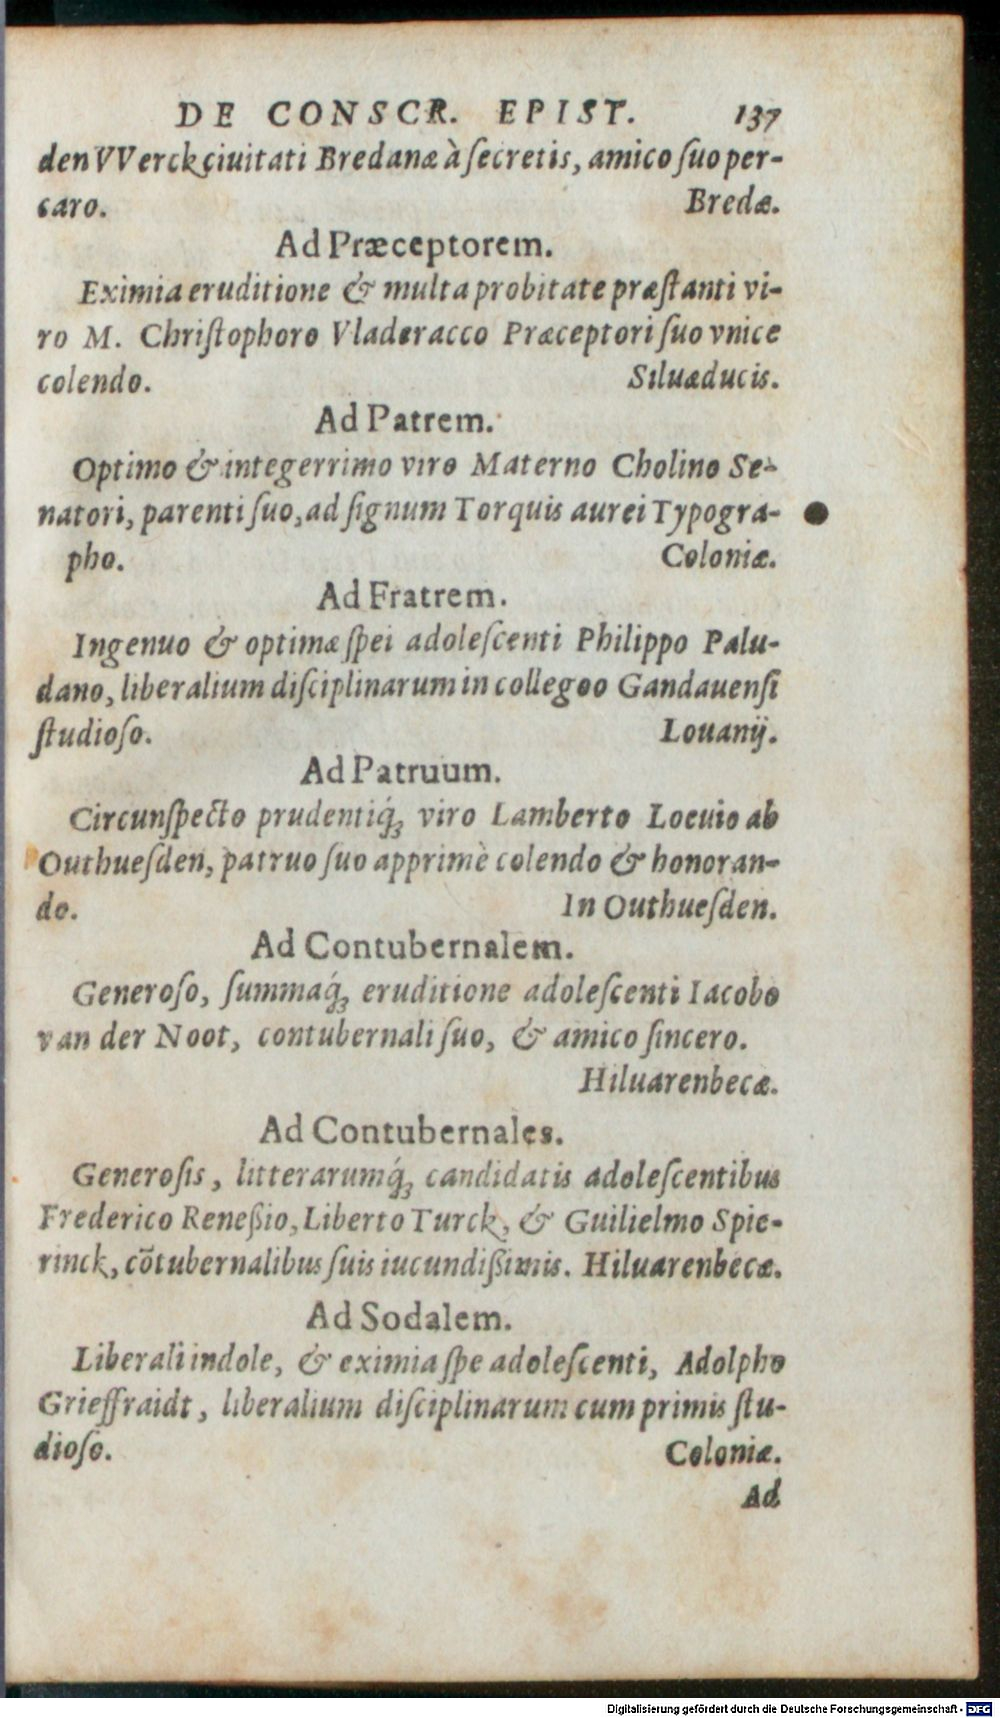 DE CONSCR. EPIST. 137
den VVerck ciuitati Bredanæ à ſecretis, amico ſuo per-
caro. Bredæ.
Ad Præceptorem.
Eximia eruditione & multa probitate præſtanti vi-
ro M. Chriſtophoro Vladeracco Præceptori ſuo vnice
colendo. Siluæducis.
Ad Patrem.
Optimo & integerrimo viro Materno Cholino Se-
natori, parenti ſuo, ad ſignum Torquis aurei Typogra-
pho. Coloniæ.
Ad Fratrem.
Ingenuo & optimæ ſpei adoleſcenti Philippo Palu-
dano, liberalium diſciplinarum in collegoo Gandauenſi
ſtudioſo. Louanij.
Ad Patruum.
Circunſpecto prudentiq́ꝫ viro Lamberto Loeuio ab
Outhueſden, patruo ſuo apprimè colendo & honoran-
do. In Outhueſden.
Ad Contubernalem.
Generoſo, ſummaq́ꝫ eruditione adoleſcenti Iacobo
van der Noot, contubernali ſuo, & amico ſincero.
Hiluarenbecæ.
Ad Contubernales.
Generoſis, litterarumq́ꝫ candidatis adoleſcentibus
Frederico Reneßio, Liberto Turck, & Guilielmo Spie-
rinck, cõtubernalibus ſuis iucundißimis. Hiluarenbecæ.
Ad Sodalem.
Liberali indole, & eximia ſpe adoleſcenti, Adolpho
Grieffraidt, liberalium diſciplinarum cum primis ſtu-
dioſo. Coloniæ.
Ad
Digitalisierung gefördert durch die Deutsche Forschungsgemeinschaft - DFG